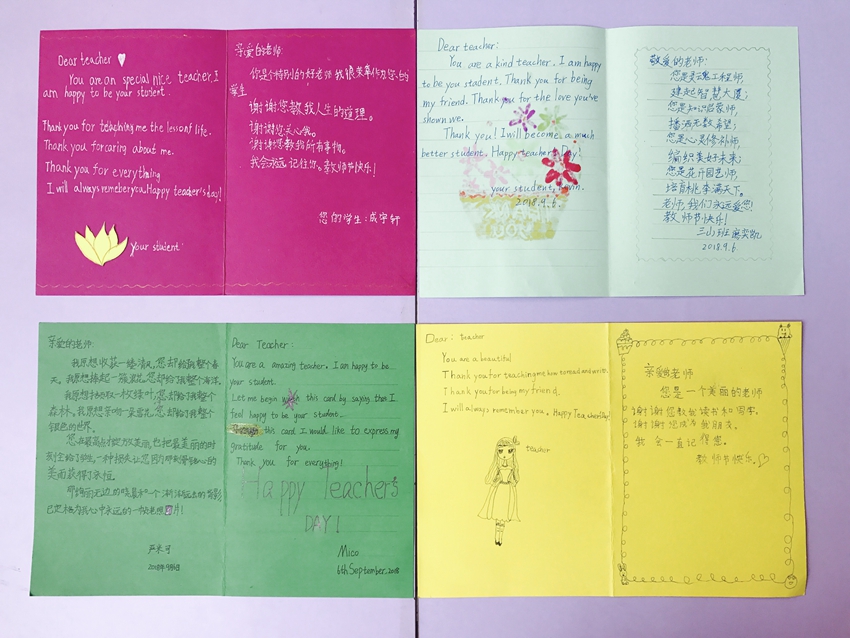 Dear teacher
You are an special nice teacher, I
am happy to be your student.
Thank you for teaching me the lesson of life.
Thank you for caring about me.
Thank you for everything
I will always remeberyou. Happy teacher's day!
your student:
亲爱的老师:
你是个特别的好老师 我很荣幸作为您的
学生
谢谢您教我人生的道理。
谢谢您关心我。
谢谢您教我所有事物。
我会永远记住你。教师节快乐!
您的学生:成宇轩
Dear teacher:
You are a kind teacher. I am happy
to be you student. Thank you for being
my friend. Thank you for the love you've
shown me.
Thank you! I will become a much
better student. Happy teacher's Day!
your student,
2018.9.6.
敬爱的老师:
您是灵魂工程师,
建起智慧大厦;
您是知识启蒙师,
播洒无数希望;
您是心灵修补师,
编织美好未来;
您是花卉园艺师,
培育桃李满天下。
老师,我们永远爱您!
教师节快乐!
三(4)班
2018.9.6
亲爱的老师:
我原想收获一缕清风,您却给了我整个春
天。我原想捧起一簇浪花,您却给了我整个海洋。
我原想撷取一枚绿叶,您却给了我整个
森林。我原想亲吻一朵雪花,您却给了我整个
银色的世界。
您在最高点才能放美丽,也把最美丽的时
美而获得了永恒。
2018年9月6日
Dear Teacher:
You are a amazing teacher. I am happy to be
your student.
Let me begin this card by saying that I
feel happy to be your student.
Through this card I would like to express my
gratitude for you.
Thank you for everything!
Happy Teacher's
DAY!
Mico
6th September. 2018
Dear: teacher
You are a beautiful
Thank you for teaching me how to read and write.
Thank you for being my friend.
I will always remember you. Happy Teacher's Day!
teacher
亲爱的老师
您是一个美丽的老师
谢谢您教我读书和写字。
谢谢您成为我朋友。
我会一直记得您。
教师节快乐。